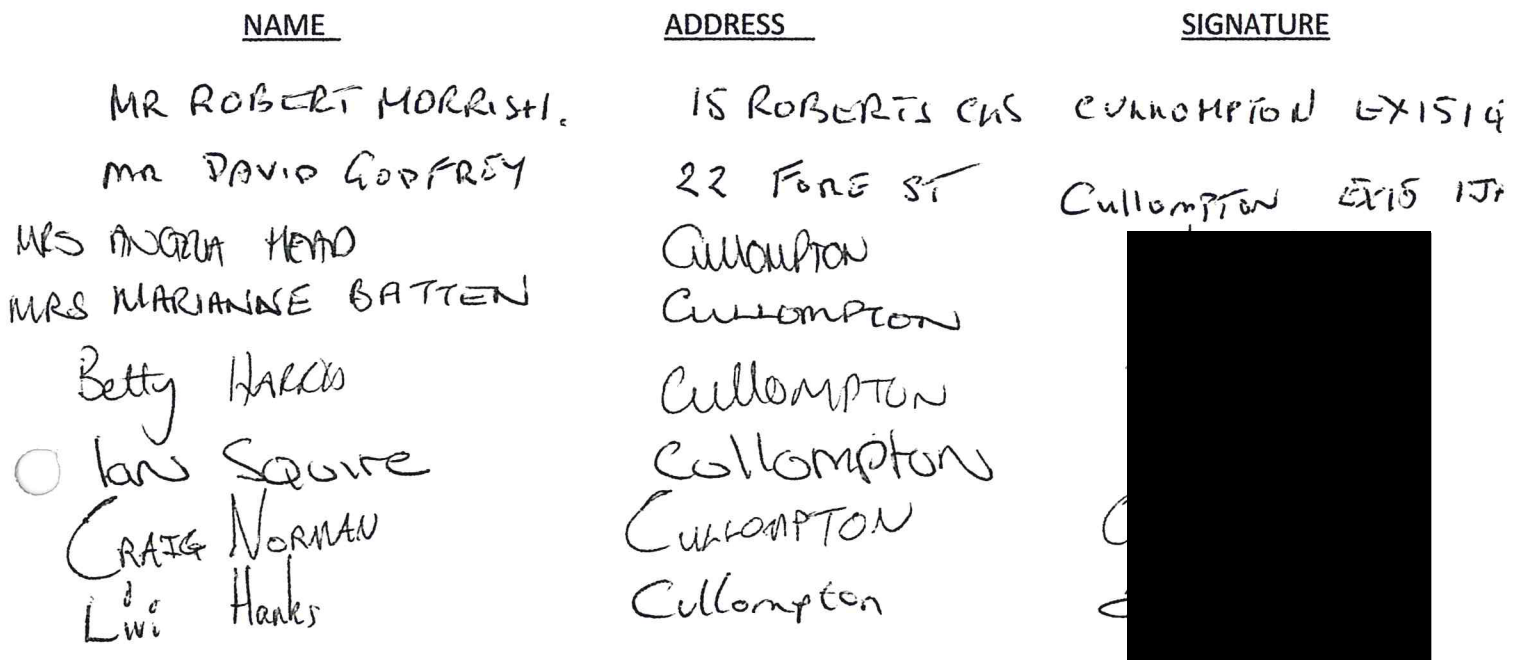 NAME ADDRESS SIGNATURE
MR ROBERT MORRISH. 15 ROBERTS CLS CULLOMPTON EX15 1
MR DAVID GODFREY 22 FORE ST CullompTON EX15 1J
MRS ANGELA HEAD CULLOMPTON
MRS MARIANNE BATTEN CULLOMPTON
Betty HARRIS CullOMPTON
Ian Squire Collompton
CRAIG NORMAN CULLOMPTON
Hanks Cullompton